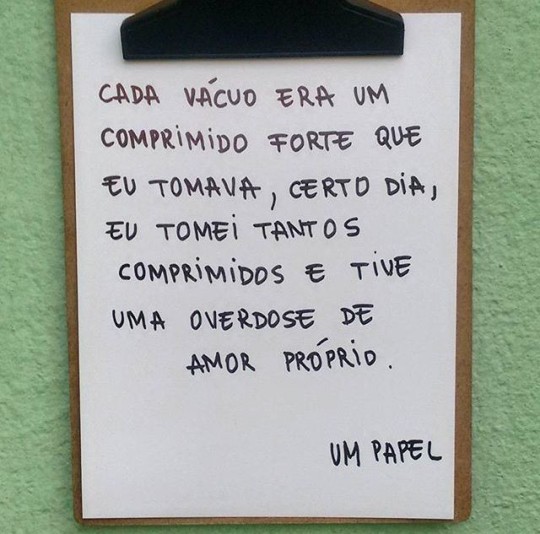 CADA VÁCUO ERA UM
COMPRIMIDO FORTE QUE
EU TOMAVA, CERTO DIA,
EU TOMEI TANTOS
COMPRIMIDOS E TIVE
UMA OVERDOSE DE
AMOR PRÓPRIO.
UM PAPEL